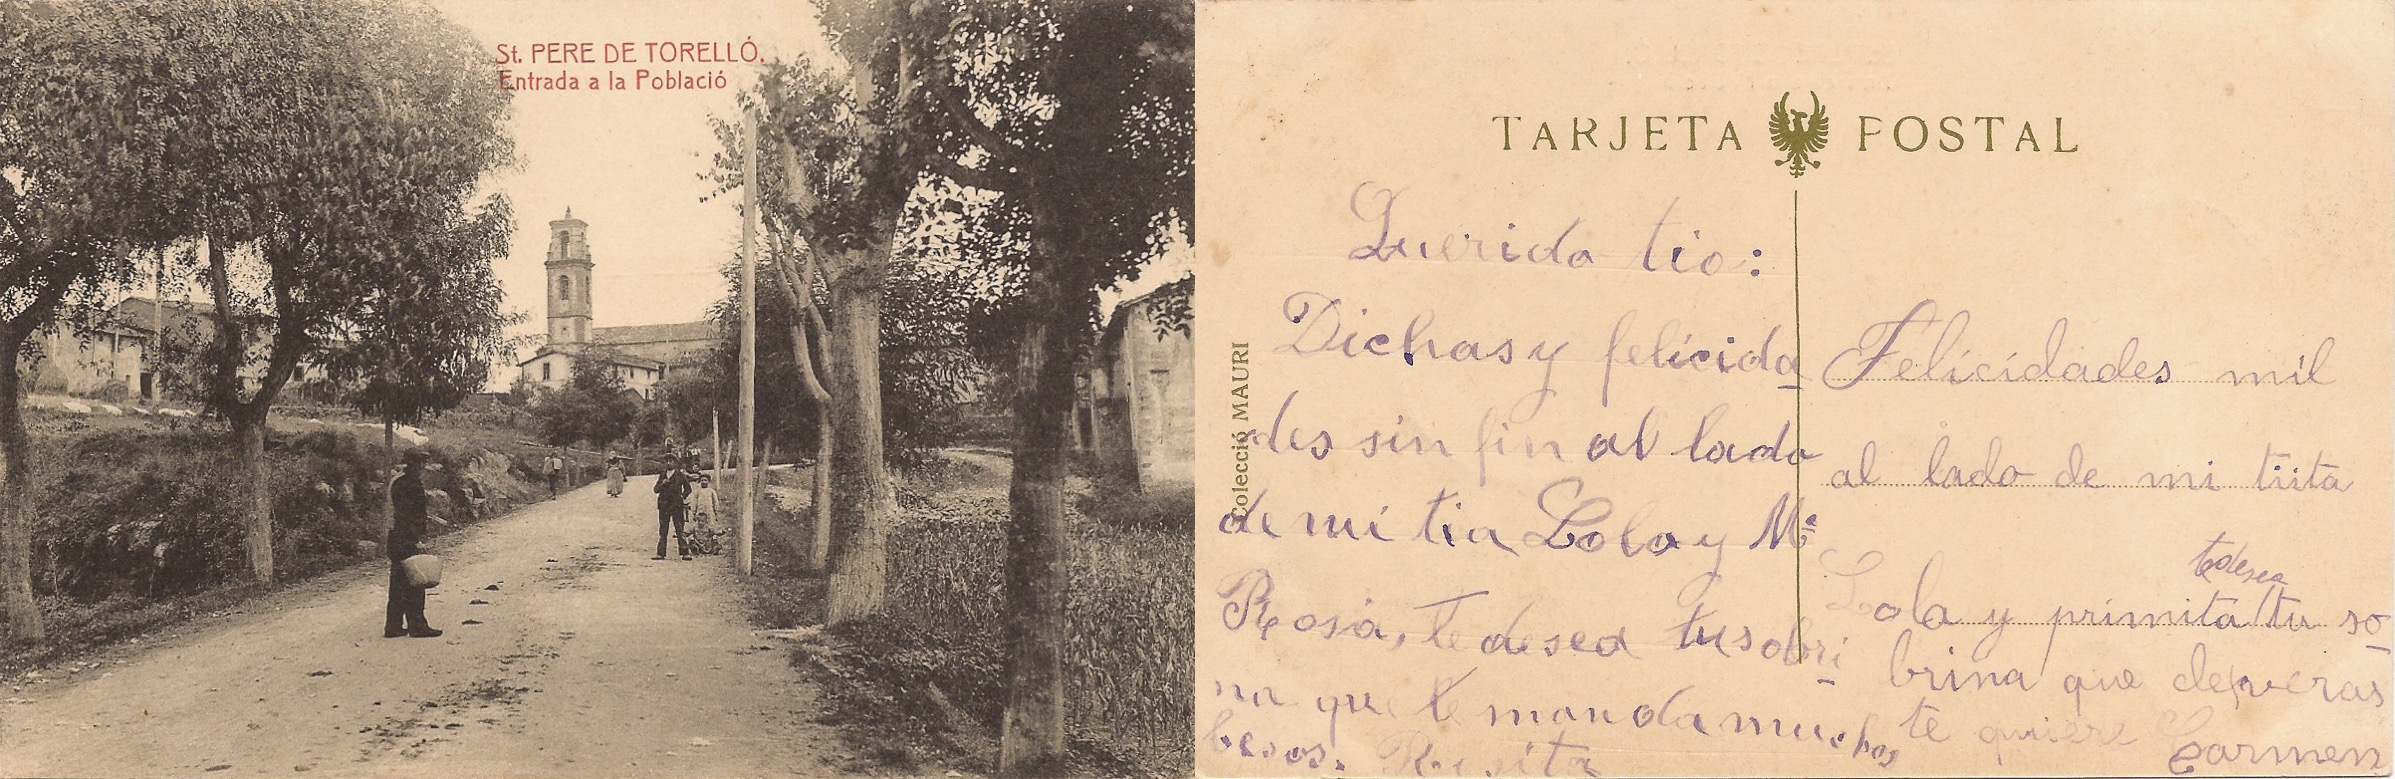 St. PERE DE TORELLÓ.
Entrada a la Població
TARJETA POSTAL
Colecció MAURI
Querido tio:
Dichas y felicida
des sin fin al lado
de mi tia Lola y Mª
Rosa, te desea tu sobri
na que te manda muchos
besos. Rosita
Felicidades mil
al lado de mi tiita
te desea
Lola y primita tu so
brina que de veras
te quiere Carmen